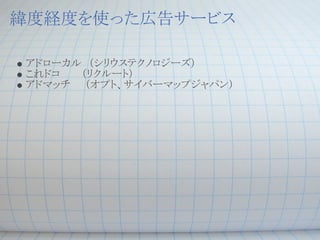 緯度経度を使った広告サービス
● アドローカル （シリウステクノロジーズ）
● これドコ （リクルート）
● アドマッチ （オプト、サイバーマップジャパン）